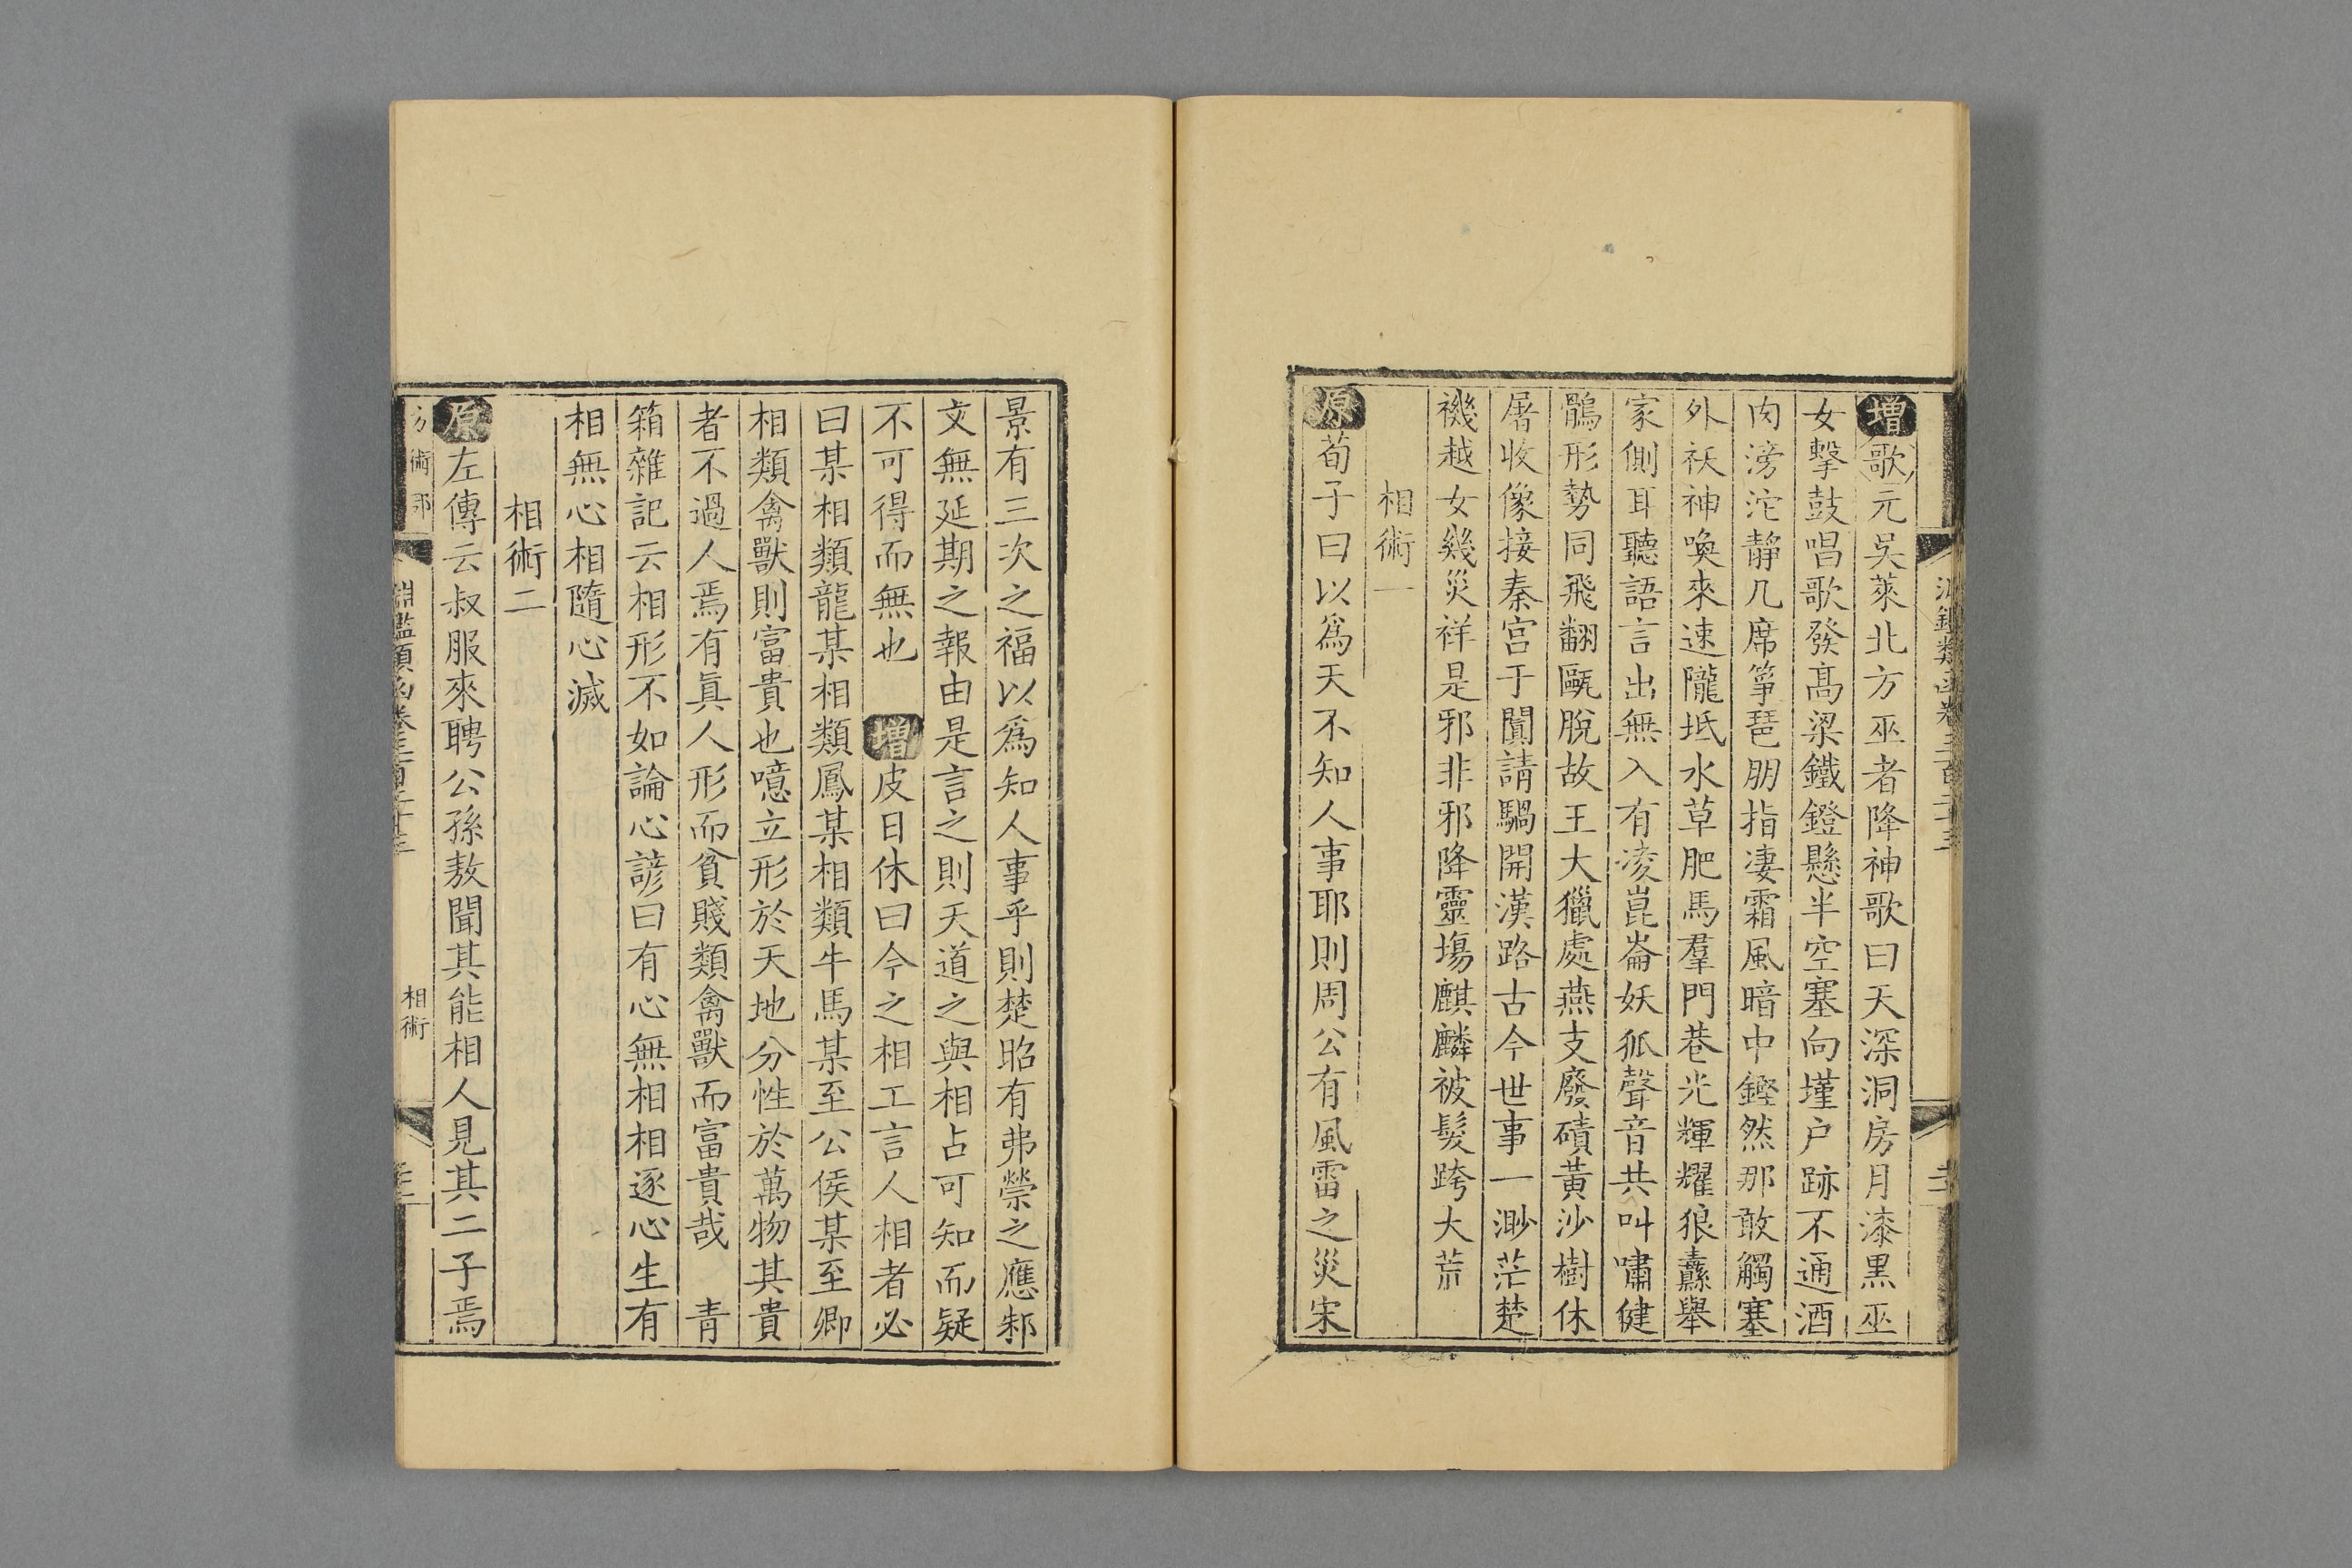 增歌元吳萊北方巫者降神歌曰天深洞房月漆黒巫
女擊鼓唱歌發高梁鐵鐙懸半空塞向墐户跡不通酒
肉滂沱靜几席箏琶朋指凄霜風暗中鏗然那敢觸塞
外祅神喚來速隴坻水草肥馬羣門巷光輝耀狼纛舉
家側耳聽語言出無入有凌崑崙妖狐聲音共叫嘯健
鶻形勢同飛翻甌脫故王大獵處燕支廢磧黃沙樹休
屠收像接秦宮于闐請騧開漢路古今世事一渺茫楚
禨越女幾災祥是邪非邪降靈塲麒麟被髮跨大荒
相術一
原荀子曰以爲天不知人事耶則周公有風雷之災宋
景有三次之福以爲知人事乎則楚昭有弗禜之應邾
文無延期之報由是言之則天道之與相占可知而疑
不可得而無也 增皮日休曰今之相工言人相者必
曰某相類龍某相類鳳某相類牛馬某至公侯某至卿
相類禽獸則富貴也噫立形於天地分性於萬物其貴
者不過人焉有眞人形而貧賤類禽獸而富貴哉 青
箱雜記云相形不如論心諺曰有心無相相逐心生有
相無心相隨心滅
相術二
原左傳云叔服來聘公孫敖聞其能相人見其二子焉
淵鑑類函卷三百二十三
相術